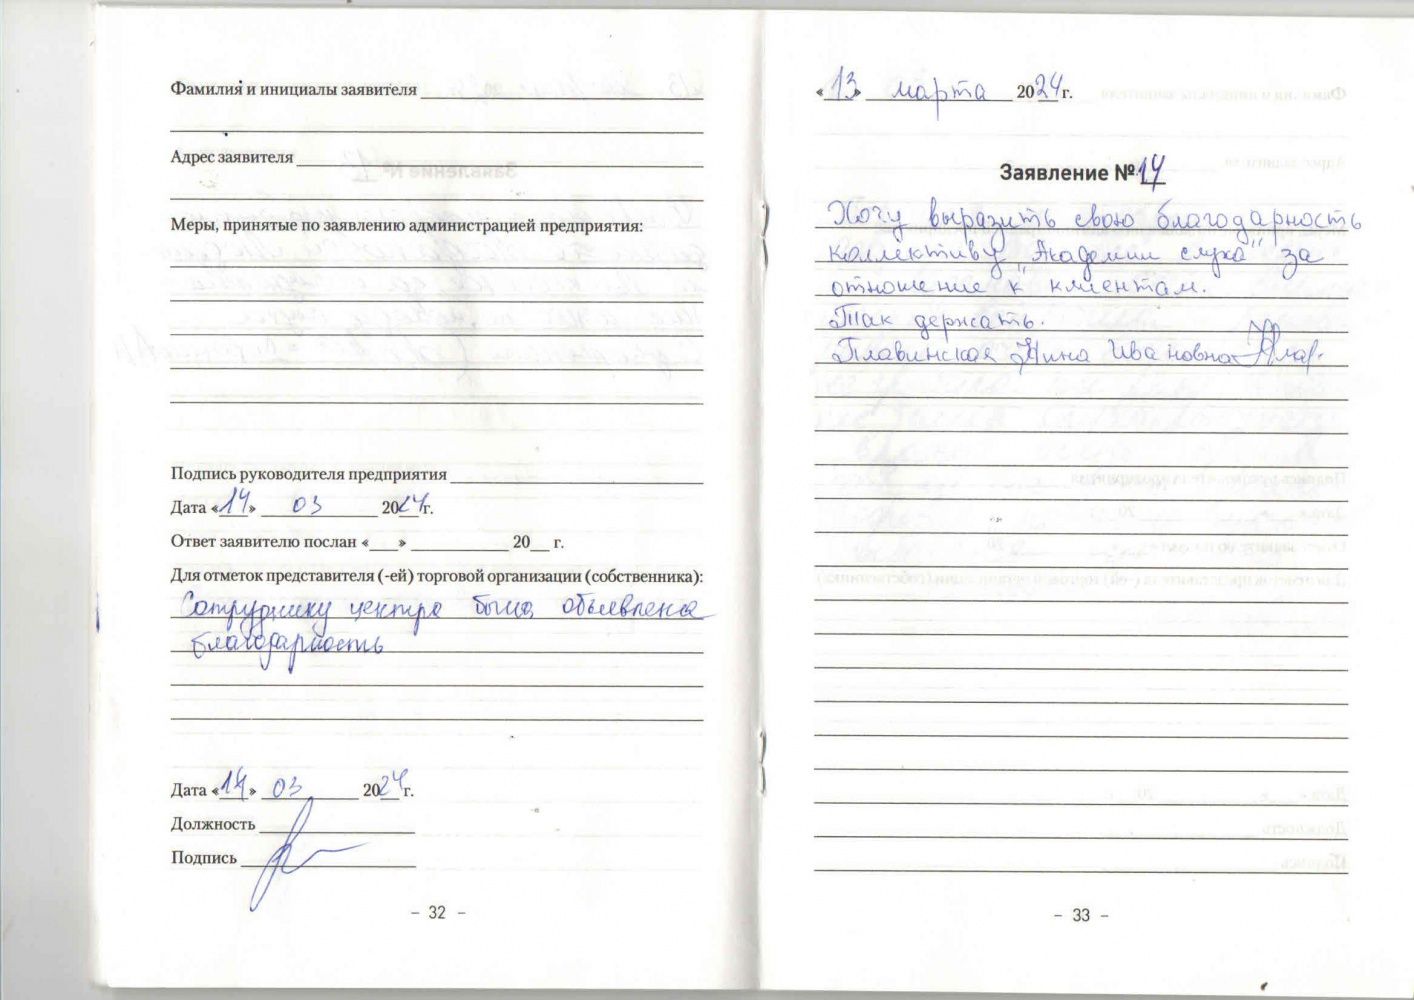 Фамилия и инициалы заявителя
Адрес заявителя
Меры, принятые по заявлению администрацией предприятия:
Подпись руководителя предприятия
Дата «14» 03 2024г.
Ответ заявителю послан «___» ____________ 20__ г.
Для отметок представителя (-ей) торговой организации (собственника):
Сотруднику центра была объявлена
благодарность
Дата «14» 03 2024г.
Должность
Подпись
- 32 -
«13» марта 2024г.
Заявление №14
Хочу выразить свою благодарность
коллективу "Академии слуха" за
отношение к клиентам.
Так держать.
Плавинская Нина Ивановна
- 33 -